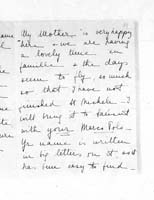 My Mother is very happy
here & we are having
a lovely time en
famille & the days
seem to fly, so much
so that I have not
finished St Michele. I
will bring it to
with your Marco Polo.
Yr name is written
in big letters on it so it
has been easy to find.